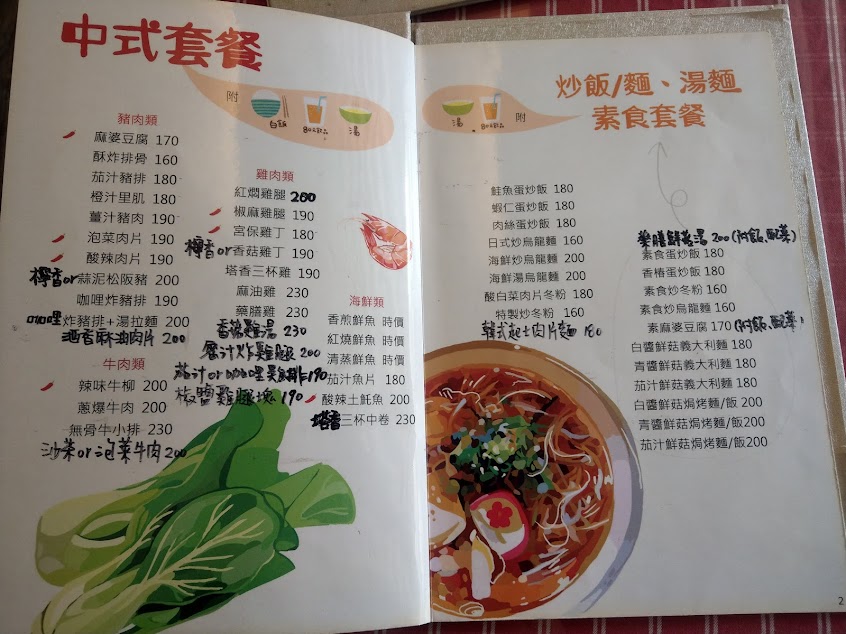 中式套餐
附
白飯
湯
豬肉類
麻婆豆腐 170
酥炸排骨 160
茄汁豬排 180
橙汁里肌 180
薑汁豬肉 190
泡菜肉片 190
酸辣肉片 190
檸香or蒜泥松阪豬 200
咖哩炸豬排 190
咖哩炸豬排+湯拉麵 200
酒香麻油肉片 200
牛肉類
辣味牛柳 200
蔥爆牛肉 200
無骨牛小排 230
沙茶or泡菜牛肉 200
雞肉類
紅燜雞腿 200
椒麻雞腿 190
宮保雞丁 180
檸香or香菇雞丁 190
塔香三杯雞 190
麻油雞 230
藥膳雞 230
香菇雞湯 230
醬汁炸雞腿 200
茄汁or咖哩雞排 190
椒鹽雞腿塊 190
海鮮類
香煎鮮魚 時價
紅燒鮮魚 時價
清蒸鮮魚 時價
茄汁魚片 180
酸辣土魠魚 200
塔香三杯中卷 230
湯
附
炒飯/麵、湯麵
素食套餐
鮭魚蛋炒飯 180
蝦仁蛋炒飯 180
肉絲蛋炒飯 180
日式炒烏龍麵 160
海鮮炒烏龍麵 200
海鮮湯烏龍麵 200
酸白菜肉片冬粉 180
特製炒冬粉 160
韓式起士肉片麵 180
藥膳鮮菇湯 200 (附飯、配菜)
素食蛋炒飯 180
香椿蛋炒飯 180
素食炒冬粉 160
素食炒烏龍麵 160
素麻婆豆腐 170 (附飯、配菜)
白醬鮮菇義大利麵 180
青醬鮮菇義大利麵 180
茄汁鮮菇義大利麵 180
白醬鮮菇焗烤麵/飯 200
青醬鮮菇焗烤麵/飯200
茄汁鮮菇焗烤麵/飯200
2